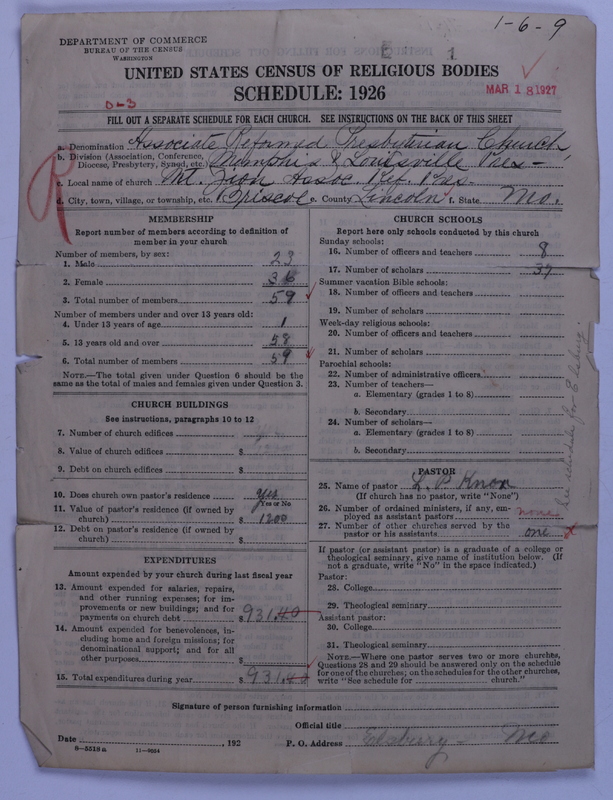 1-6-9
DEPARTMENT OF COMMERCE
BUREAU OF THE CENSUS
WASHINGTON
1
UNITED STATES CENSUS OF RELIGIOUS BODIES
SCHEDULE: 1926
MAR 18 1927
0-3
FILL OUT A SEPARATE SCHEDULE FOR EACH CHURCH. SEE INSTRUCTIONS ON THE BACK OF THIS SHEET
R
a. Denomination Associate Reformed Presbyterian Church
b. Division (Association, Conference, Diocese, Presbytery, Synod, etc.) Memphis & Louisville Pres-
c. Local name of church Mt. Zion Assoc. Ref. Pres.
d. City, town, village, or township, etc. Briscoe e. County Lincoln f. State Mo.
MEMBERSHIP
Report number of members according to definition of
member in your church
Number of members, by sex:
1. Male 23
2. Female 36
3. Total number of members 59
Number of members under and over 13 years old:
4. Under 13 years of age 1
5. 13 years old and over 58
6. Total number of members 59
NOTE.—The total given under Question 6 should be
same as the total of males and females given under Question 3.
CHURCH BUILDINGS
See instructions, paragraphs 10 to 12
7. Number of church edifices
8. Value of church edifices $
9. Debt on church edifices $
10. Does church own pastor's residence Yes
Yes or No
11. Value of pastor's residence (if owned by
church) $ 1200
12. Debt on pastor's residence (if owned by
church) $
EXPENDITURES
Amount expended by your church during last fiscal year
13. Amount expended for salaries, repairs,
and other running expenses; for im-
provements or new buildings; and for
payments on church debt $ 931.40
14. Amount expended for benevolences, in-
cluding home and foreign missions; for
denominational support; and for all
other purposes $
15. Total expenditures during year $ 931.40
CHURCH SCHOOLS
Report here only schools conducted by this church
Sunday schools:
16. Number of officers and teachers 8
17. Number of scholars
Summer vacation Bible schools:
18. Number of officers and teachers
19. Number of scholars
Week-day religious schools:
20. Number of officers and teachers
21. Number of scholars
Parochial schools:
22. Number of administrative officers
23. Number of teachers—
a. Elementary (grades 1 to 8)
b. Secondary
24. Number of scholars—
a. Elementary (grades 1 to 8)
b. Secondary
PASTOR
25. Name of pastor L. P. Knox
(If church has no pastor, write "None")
26. Number of ordained ministers, if any, em-
ployed as assistant pastors none
27. Number of other churches served by the
pastor or his assistants one
See schedule for Elsberry.
If pastor (or assistant pastor) is a graduate of a college or
theological seminary, give name of institution below. (If
not a graduate, write "No" in the space indicated.)
Pastor:
28. College
29. Theological seminary
Assistant pastor:
30. College
31. Theological seminary
NOTE.—Where one pastor serves two or more churches,
Questions 28 and 29 should be answered only on the schedule
for one of the churches; on the schedules for the other churches,
write "See schedule for church."
Signature of person furnishing information
Official title
Date , 192 P. O. Address Elsbury - Mo
8-5518a 11-9664